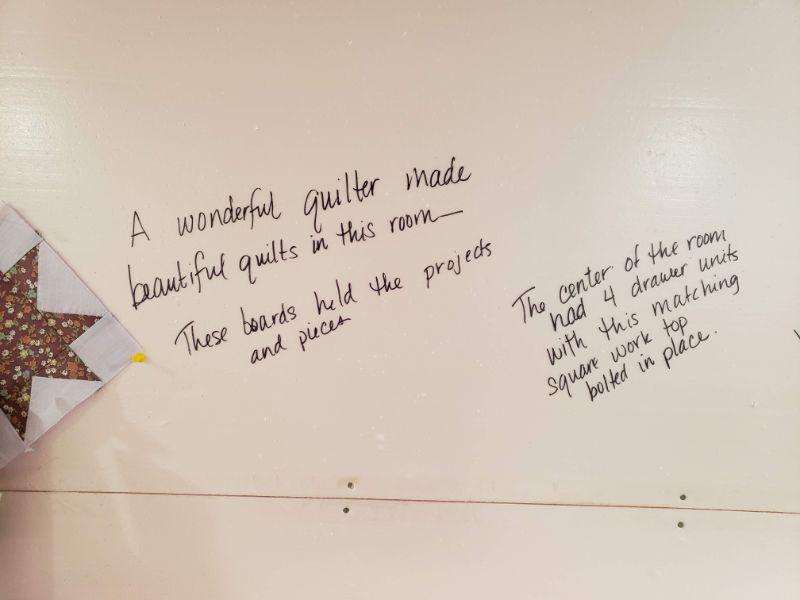 A wonderful quilter made
beautiful quilts in this room—
These boards held the projects
and pieces
The center of the room
had 4 drawer units
with this matching
square work top
bolted in place.